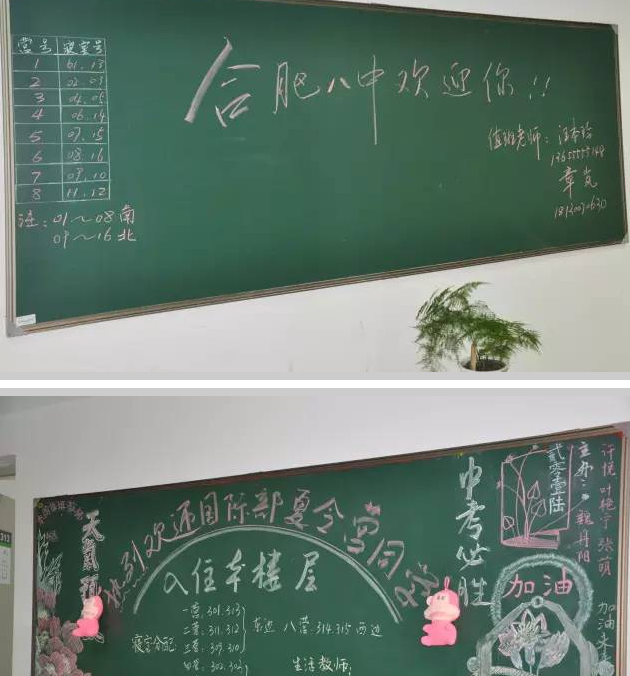 营号 寝室号
1 01.13
2 02.03
3 04.05
4 06.14
5 07.15
6 08.16
7 09.10
8 11.12
注：01～08南
09～16北
合肥八中欢迎你!!
值班老师：
章岚
天气预
欢迎国际部夏令营同
入住本楼层
寝室分配
一营：301.313
二营：311.312
三营：309.310
四营：302.303
东边 八营：314.315 西边
生活教师：
中考必胜
贰零壹陆
主办：魏丹阳
许悦 叶艳宁 张萌
加油
加油
313